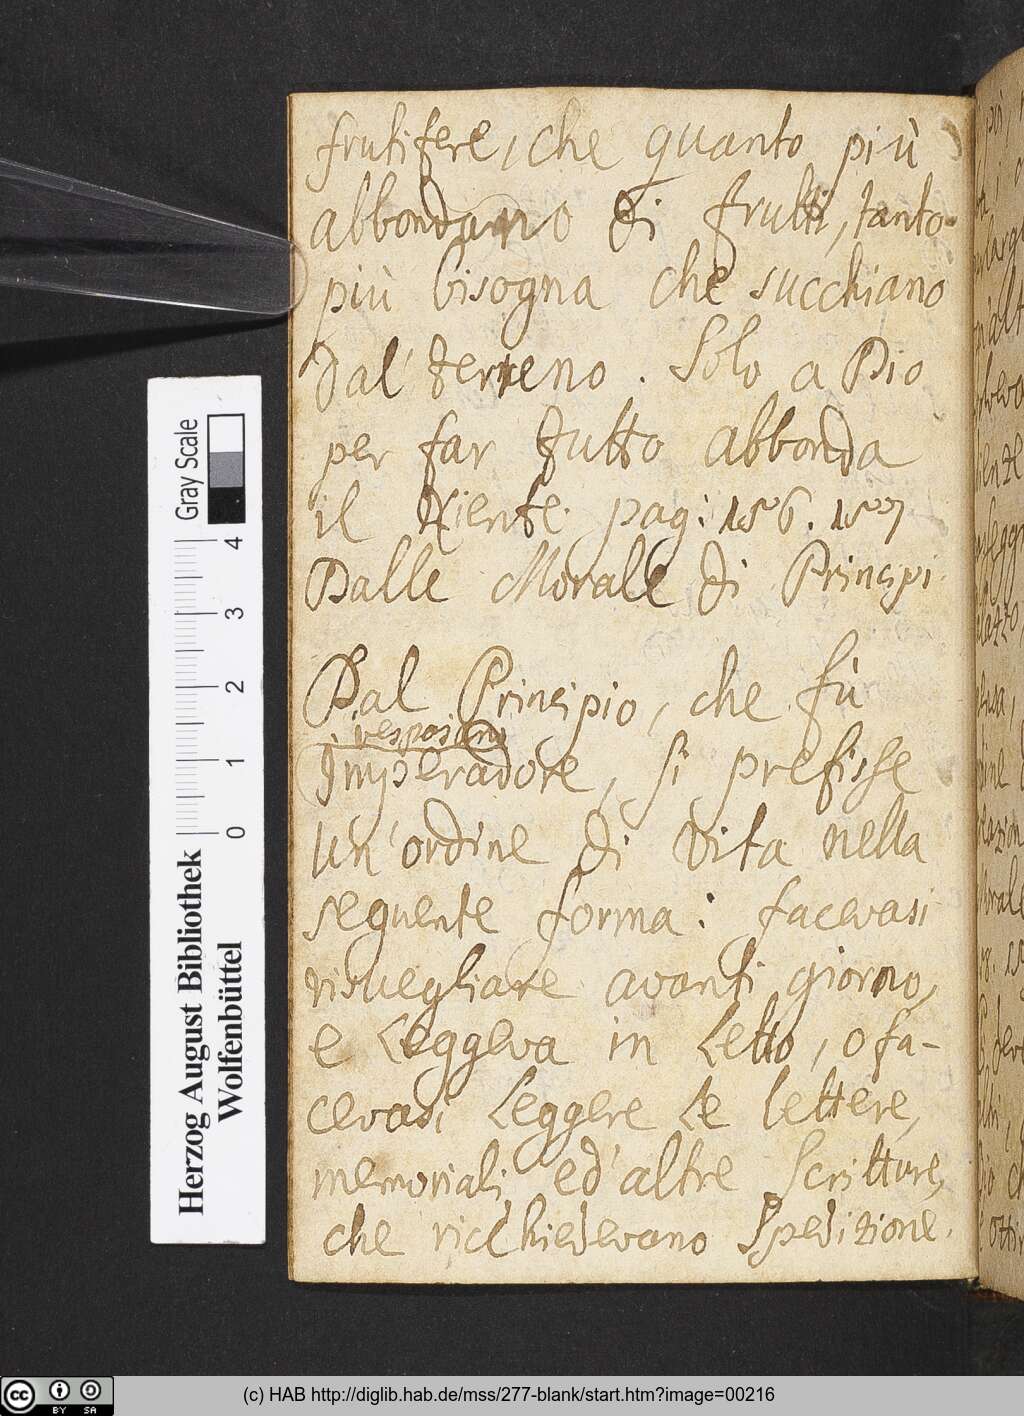 frutifere, che quanto più
abbondano di frutti, tanto
più bisogna che succhiano
dal terreno. Solo a Dio
per far tutto abbonda
il Niente. pag: 156. 157
Dalle Morale di Principi.
Dal Principio, che fù
vespasiano
Imperadore, si prefisse
un'ordine di vita nella
seguente forma: facevasi
risuegliare avanti giorno,
e Leggeva in Letto, o fa-
cevasi Leggere Le lettere,
memoriali ed'altre Scritture,
che ricchiedevano Spedizione.
Gray Scale
4
3
2
1
0
Herzog August Bibliothek
Wolfenbüttel
CC BY SA
(c) HAB http://diglib.hab.de/mss/277-blank/start.htm?image=00216